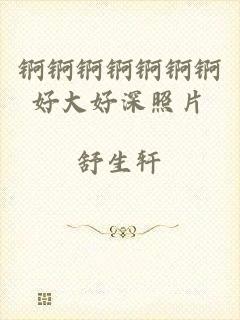 锕锕锕锕锕锕锕
好大好深照片
舒生轩